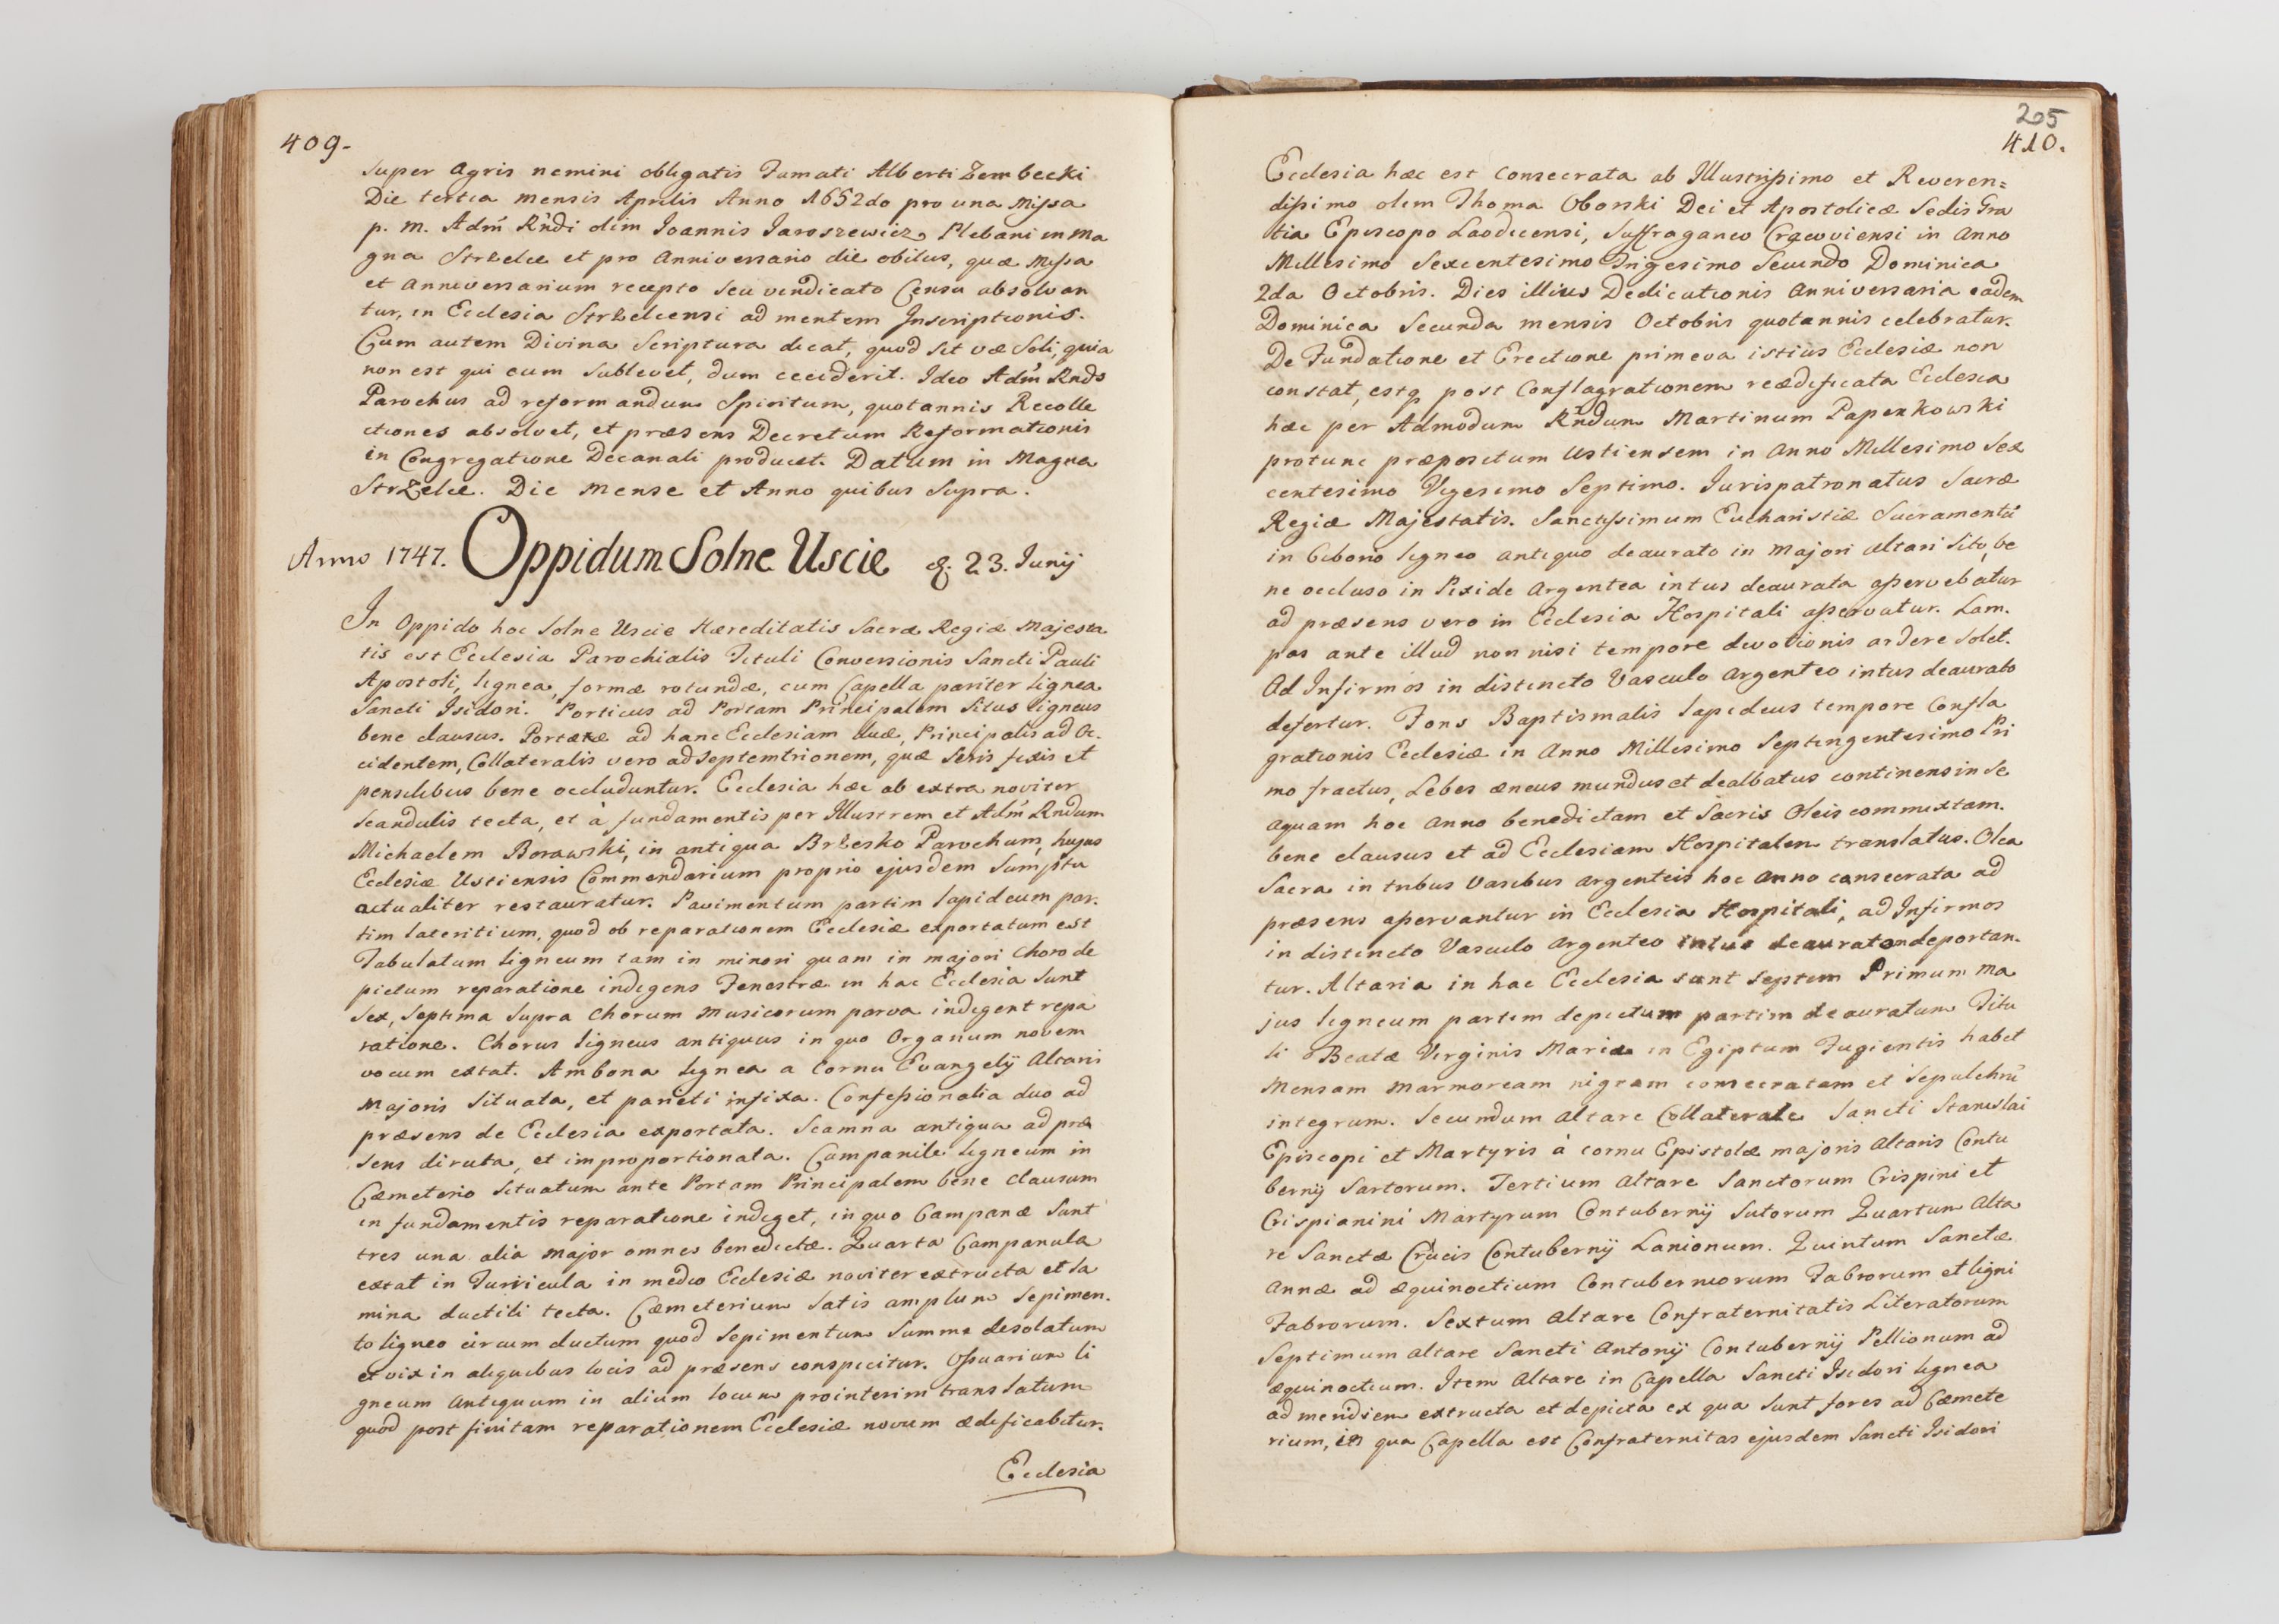 409-
super Agris nemini obligatis Famati Alberti Zembecki
Die tertia mensis Aprilis Anno 1652do pro una Missa
p. m. Adm̃ Rñdi olim Joannis Jaroszewicz Plebani in Ma
gna Strzelce et pro Anniversario die obitus, quæ Missa
et Anniversarium recepto seu vendicato Censu absolvan
tur, in Ecclesia Strzelcensi ad mentem Inscriptionis.
Cum autem Divina Scriptura dicat, quod sit væ Soli, quia
non est qui eum sublevet, dum ceciderit. Ideo Adm̃ Rnds
Parochus ad reformandum Spiritum, quotannis Recolle
ctiones absolvet, et præsens Decretum Reformationis
in Congregatione Decanali producet. Datum in Magna
Strzelce. Die Mense et Anno quibus Supra.
Anno 1747. Oppidum Solne Uscie d. 23. Junij
In Oppido hoc Solne Uscie Hæreditatis Sacræ Regiæ Majesta
tis est Ecclesia Parochialis Tituli Conversionis Sancti Pauli
Apostoli, lignea, formæ rotundæ, cum Capella pariter lignea
Sancti Isidori. Porticus ad Portam Principalem Situs ligneus
bene clausus. Portæ ad hanc Ecclesiam duæ, Principalis ad Oc-
cidentem, Collateralis vero ad Septemtrionem, quæ Seris fixis et
pensilibus bene occluduntur. Ecclesia hæc ab extra noviter
Scandulis tecta, et à fundamentis per Illustrem et Adm̃ Rndum
Michaelem Borawski, in antiqua Brzesko Parochum, hujus
Ecclesiæ Ustiensis Commendarium proprio ejusdem Sumptu
actualiter restauratur. Pavimentum partim lapideum par-
tim lateritium, quod ob reparationem Ecclesiæ exportatum est
Tabulatum ligneum tam in minori quam in majori Choro de
pictum reparatione indigens Fenestræ in hac Ecclesia Sunt
Sex, Septima Supra Chorum Musicorum parva indigent repa
ratione. Chorus ligneus antiquus in quo Organum novem
vocum extat. Ambona lignea a Cornu Evangelij Altaris
Majoris Situata, et parieti infixa. Confessionalia duo ad
præsens de Ecclesia exportata. Scamna antiqua ad præ
sens diruta, et improportionata. Campanile ligneum in
Cæmeterio Situatum ante Portam Principalem bene clausum
in fundamentis reparatione indiget, in quo Campanæ Sunt
tres una alia Major omnes benedictæ. Quarta Campanula
extat in Turricula in medio Ecclesiæ noviter extructa et la
mina ductili tecta. Cæmeterium Satis amplum Sepimen-
to ligneo circum ductum quod Sepimentum Summe desolatum
et vix in aliquibus locis ad præsens conspicitur. Ossuarium li
gneum Antiquum in alium locum prointerim translatum
quod post finitam reparationem Ecclesiæ novum ædificabitur.
Ecclesia
205
410.
Ecclesia hæc est Consecrata ab Illustrissimo et Reveren=
dissimo olim Thoma Oborski Dei et Apostolicæ Sedis Gra
tia Episcopo Laodicensi, Suffraganeo Cracoviensi in Anno
Millesimo Sexcentesimo Trigesimo Secundo Dominica
2da Octobris. Dies illius Dedicationis Anniversaria eadem
Dominica Secunda mensis Octobris quotannis celebratur.
De Fundatione et Erectione primeva istius Ecclesiæ non
constat, estq; post Conflagrationem reædificata Ecclesia
hæc per Admodum Rñdum Martinum Papenkowski
protunc præpositum Ustiensem in Anno Millesimo Sex
centesimo Vigesimo Septimo. Jurispatronatus Sacræ
Regiæ Majestatis. Sanctissimum Eucharistiæ Sacramentū
in Ciborio ligneo antiquo deaurato in Majori Altari Sito, be
ne occluso in Pixide Argentea intus deaurata asservebatur
ad præsens vero in Ecclesia Hospitali asservatur. Lam-
pas ante illud non nisi tempore devotionis ardere solet.
Ad Infirmos in distincto Vasculo Argenteo intus deaurato
defertur. Fons Baptismalis lapideus tempore Confla
grationis Ecclesiæ in Anno Millesimo Septingentesimo Pri
mo fractus, Lebes æneus mundus et dealbatus continens in se
Aquam hoc Anno benedictam et Sacris Oleis commixtam.
bene clausus et ad Ecclesiam Hospitalem translatus. Olea
Sacra in tribus Vasibus Argenteis hoc Anno consecrata ad
præsens asservantur in Ecclesia Hospitali, ad Infirmos
in distincto Vasculo Argenteo intus deaurato deportan-
tur. Altaria in hac Ecclesia sunt Septem Primum Ma
jus ligneum partim depictum partim deauratum Titu
li Beatæ Virginis Mariæ in Egiptum Fugientis habet
Mensam marmoream nigram consecratam et Sepulchrū
integrum. Secundum Altare Collaterale Sancti Stanislai
Episcopi et Martyris à cornu Epistolæ majoris Altaris Contu
bernij Sartorum. Tertium Altare Sanctorum Crispini et
Crispianini Martyrum Contubernij Sutorum Quartum Alta
re Sanctæ Crucis Contubernij Lanionum. Quintum Sanctæ
Annæ ad æquinoctium Contuberniorum Fabrorum et ligni
Fabrorum. Sextum Altare Confraternitatis Literatorum
Septimum Altare Sancti Antonij Contubernij Pellionum ad
æquinoctium. Item Altare in Capella Sancti Isidori lignea
ad meridiem extructa et depicta ex qua Sunt fores ad Cæmete
rium, in qua Capella est Confraternitas ejusdem Sancti Isidori